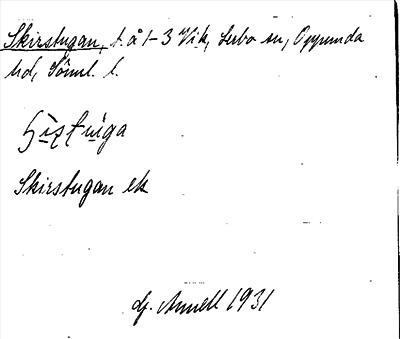 Skirstugan, t. å 1-3 Vik, Lerbo sn, Oppunda
hd, Söml. l.
Skirstugan ek
Dj. Arnell 1931